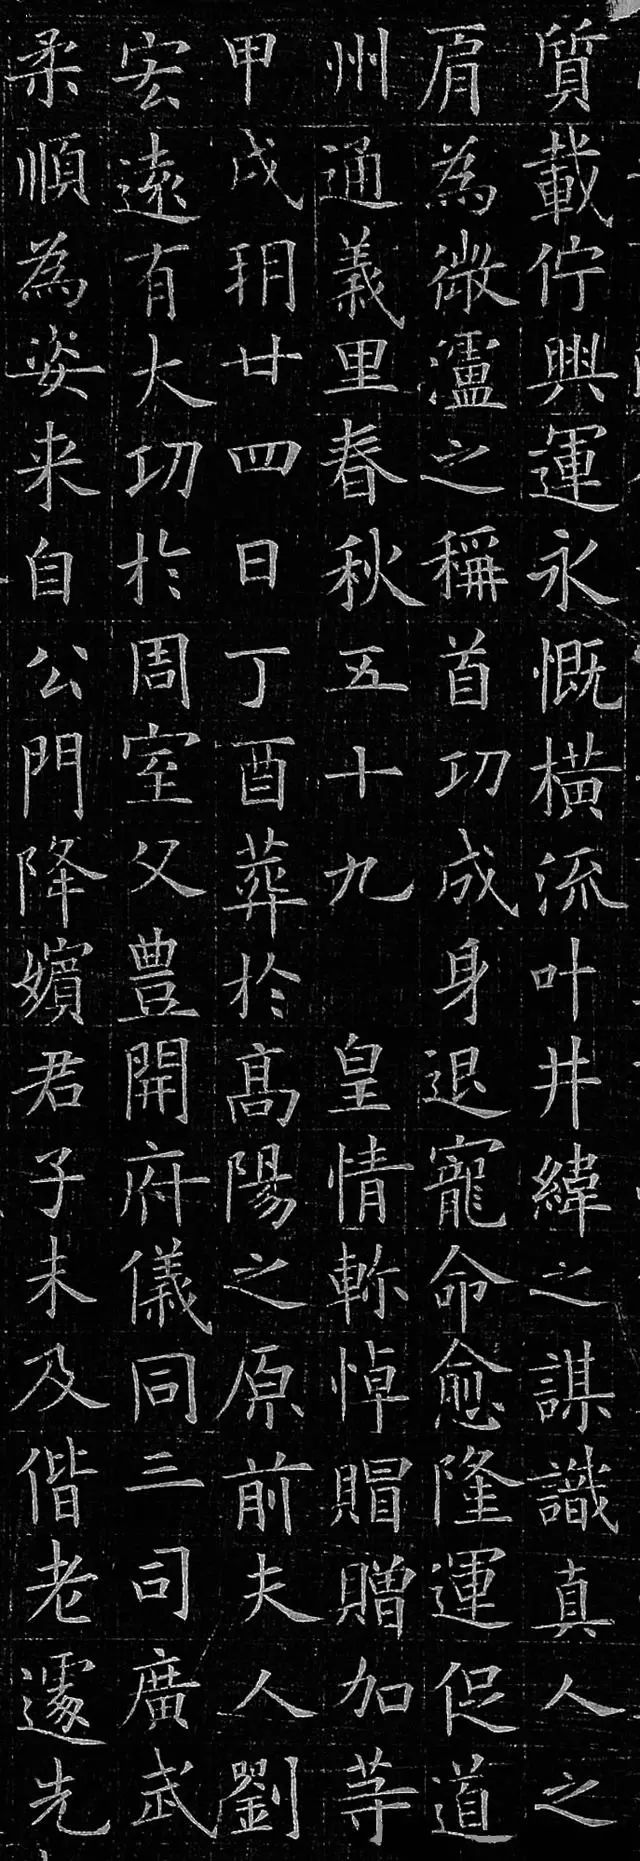 質載佇興運永慨橫流叶井緯之謀識真人之
為微瀘之稱首功成身退寵命愈隆運促道
州通義里春秋五十九皇情軫悼賵贈加等
甲戌玥廿四日丁酉葬於高陽之原前夫人劉
宏遠有大功於周室父豊開府儀同三司廣武
柔順為姿来自公門降嬪君子未及偕老遽先